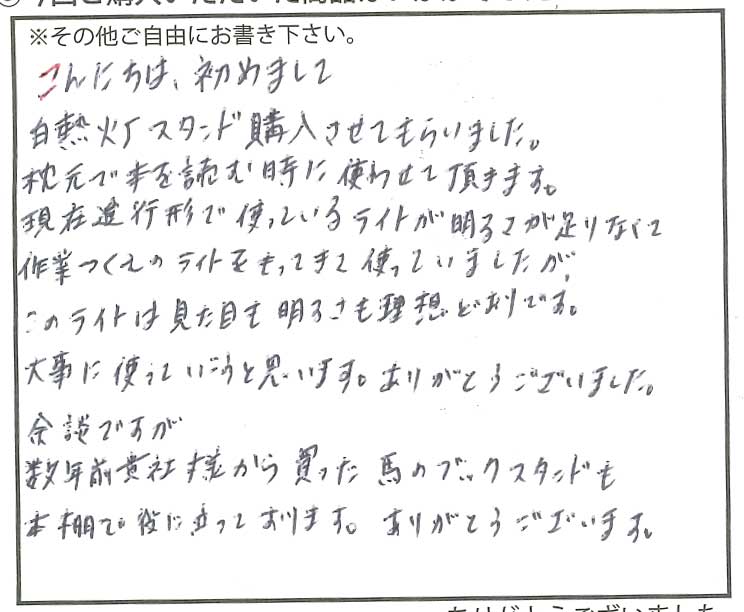 ※その他ご自由にお書き下さい。
こんにちは、初めまして
白熱灯スタンド購入させてもらいました。
枕元で本を読む時に使わせて頂きます。
現在進行形で使っているライトが明るさが足りなくて
作業つくえのライトをもってきて使っていましたが、
このライトは見た目も明るさも理想どおりです。
大事に使っていこうと思います。ありがとうございました。
余談ですが
数年前貴社様から買った馬のブックスタンドも
本棚で役に立っております。ありがとうございます。